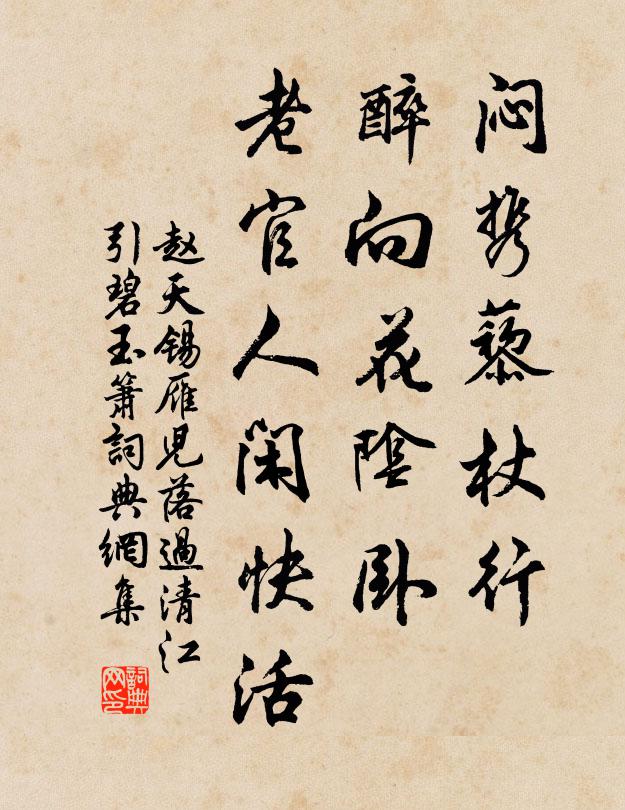 闷携藜杖行
醉向花阴卧
老官人闲快活
赵天锡雁儿落过清江
引碧玉箫詞典網集
詞典
网印